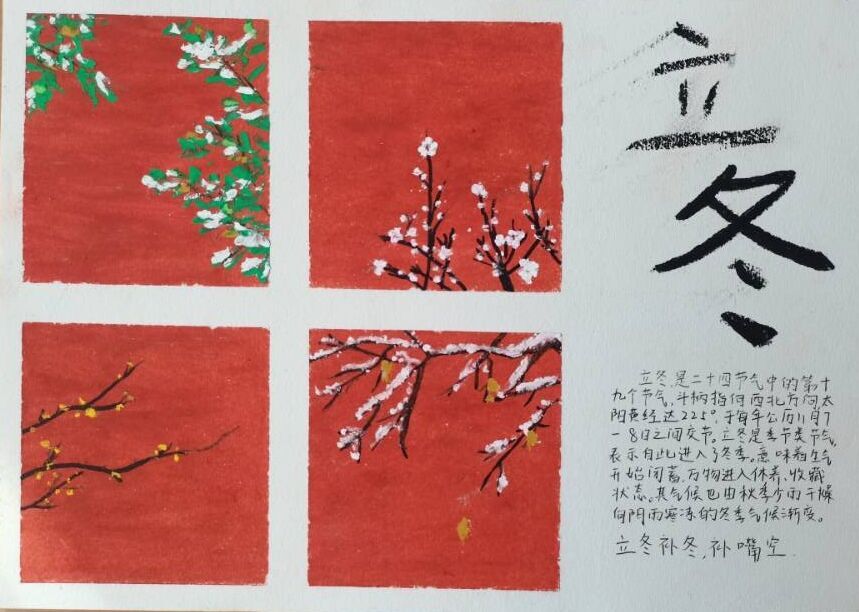 立冬
立冬是二十四节气中的第十
九个节气,斗柄指向西北方向太
阳黄经达225°,于每年公历11月7
-8日之间交节。立冬是季节类节气,
表示自此进入了冬季。意味着生气
开始闭蓄,万物进入休养、收藏
状态。其气候也由秋季少雨干燥
向阴雨寒冻的冬季气候渐变。
立冬补冬,补嘴空.